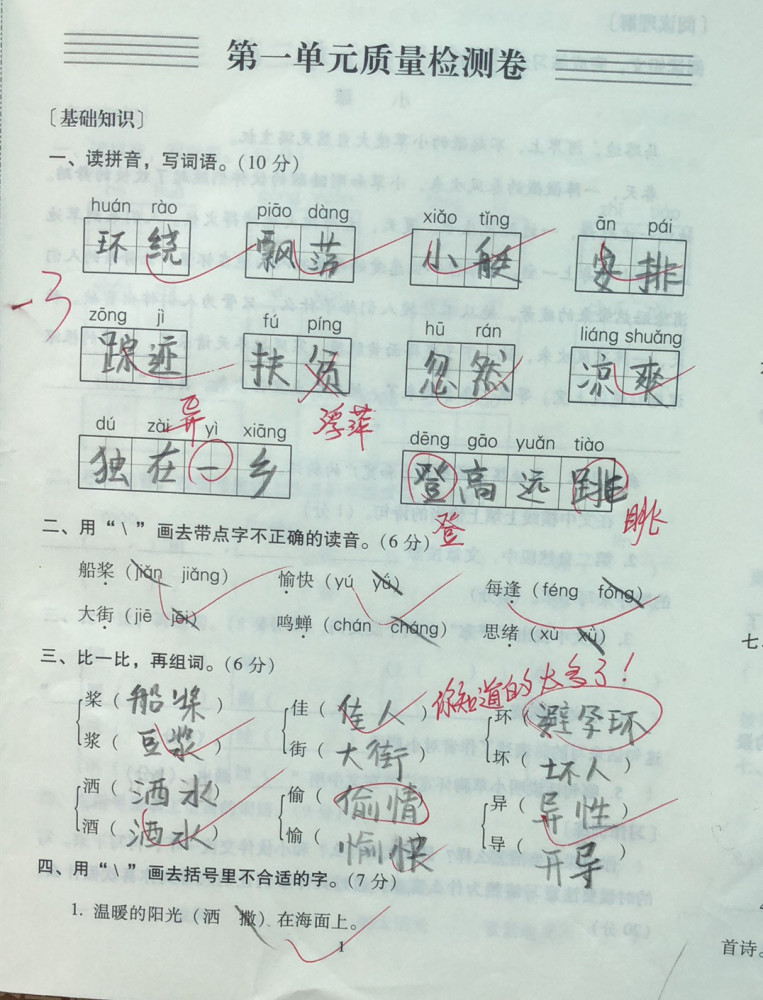 第一单元质量检测卷
〔基础知识〕
一、读拼音，写词语。(10 分)
huán rào piāo dàng xiǎo tǐng ān pái
环绕 飘荡 小艇 安排
-3
zōng jì fú píng hū rán liáng shuǎng
踪迹 扶贫 忽然 凉爽
异 浮萍
dú zài yì xiāng dēng gāo yuǎn tiào
独在一乡 登高远跳
登 眺
二、用“\”画去带点字不正确的读音。(6 分)
船桨（jiǎn jiǎng） 愉快（yú yú） 每逢（féng fóng）
大街（jiē jēi） 鸣蝉（chán cháng） 思绪（xu xǜ）
三、比一比，再组词。(6 分)
你知道的太多了！
桨（船桨） 佳（佳人） 环（避孕环）
浆（豆浆） 街（大街） 坏（坏人）
洒（洒水） 偷（偷情） 异（异性）
酒（酒水） 愉（愉快） 导（开导）
四、用“\”画去括号里不合适的字。(7 分)
1. 温暖的阳光（洒 撒）在海面上。
1
七、
首诗。